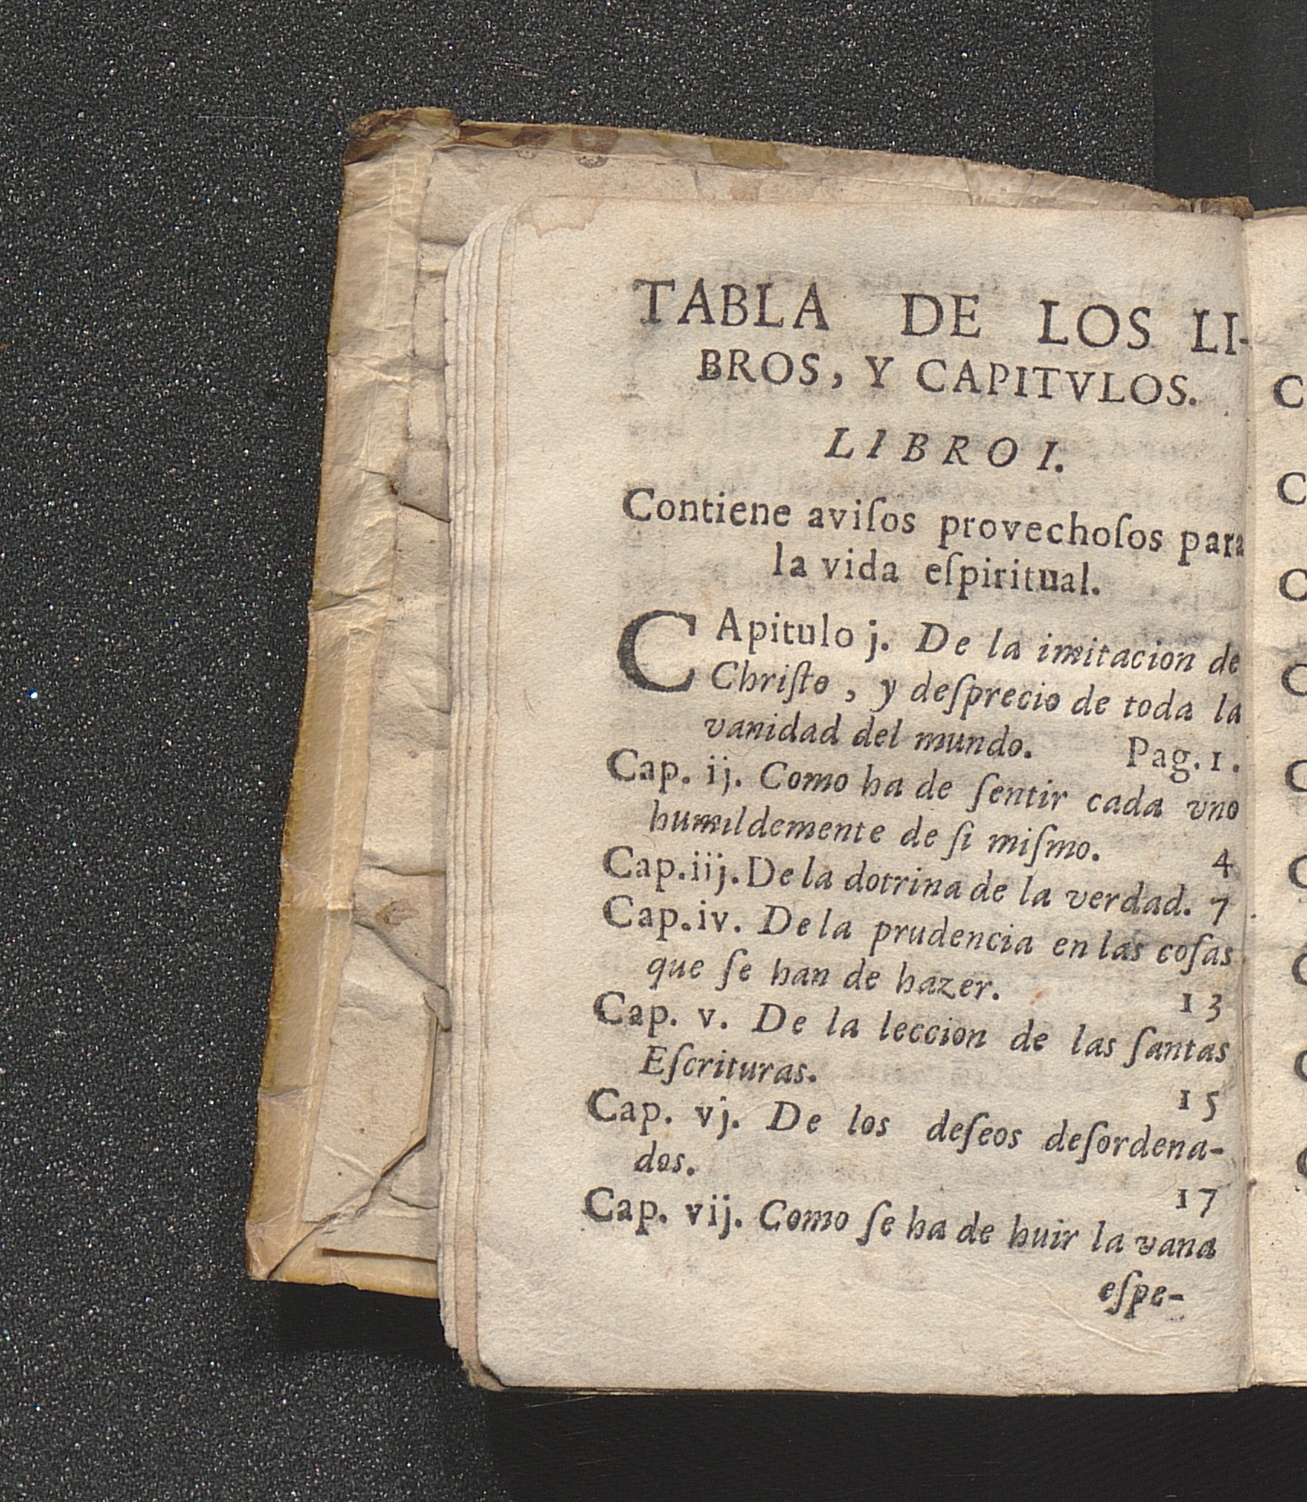 TABLA DE LOS LI-
BROS, Y CAPITVLOS.
LIBRO I.
Contiene aviſos provechoſos para
la vida eſpiritual.
CApitulo j. De la imitacion de
Chriſto, y deſprecio de toda la
vanidad del mundo. Pag. 1.
Cap. ij. Como ha de ſentir cada vno
humildemente de ſi miſmo. 4
Cap. iij. De la dotrina de la verdad. 7
Cap. iv. De la prudencia en las coſas
que ſe han de hazer. 13
Cap. v. De la leccion de las ſantas
Eſcrituras. 15
Cap. vj. De los deſeos deſordena-
dos. 17
Cap. vij. Como ſe ha de huir la vana
eſpe-